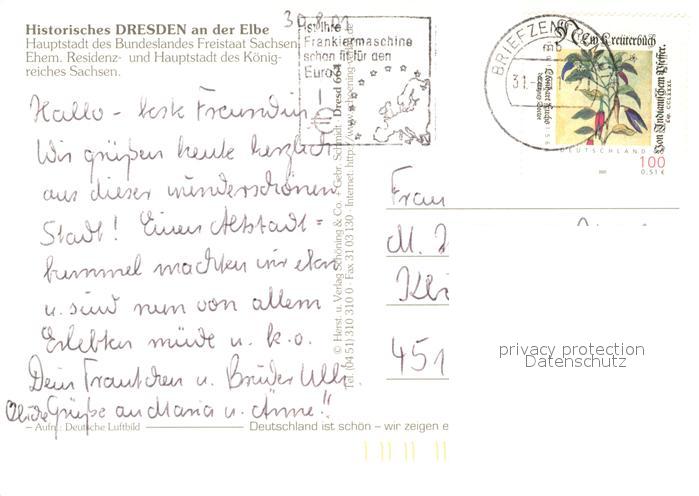 30.8.01
Historisches DRESDEN an der Elbe
Hauptstadt des Bundeslandes Freistaat Sachsen,
Ehem. Residenz- und Hauptstadt des König-
reiches Sachsen.
Ist Ihre
Frankiermaschine
schon fit für den
Euro?
BRIEFZEN
31.
New Kreüterbůch
Von Indianischem Pfeffer.
Leonhart Fuchs
DEUTSCHLAND
100
0,51 €
Hallo - beste Freundin
Wir grüßen heute herzlich
aus dieser wunderschönen
Stadt! Einen Altstadt=
bummel machten wir eben
u. sind nun von allem
Erlebten müde u. k.o.
Dein Trautchen u. Bruder Ulli
Grüße an Maria u. Änne!!
© Herst. u. Verlag Schöning & Co. + Gebr. Schmidt · Dresd 664
Tel. (04 51) 310 310 0 · Fax 31 03 130 · Internet: http://www.
Frau
M.
451
privacy protection
Datenschutz
– Aufn.: Deutsche Luftbild
Deutschland ist schön – wir zeigen e